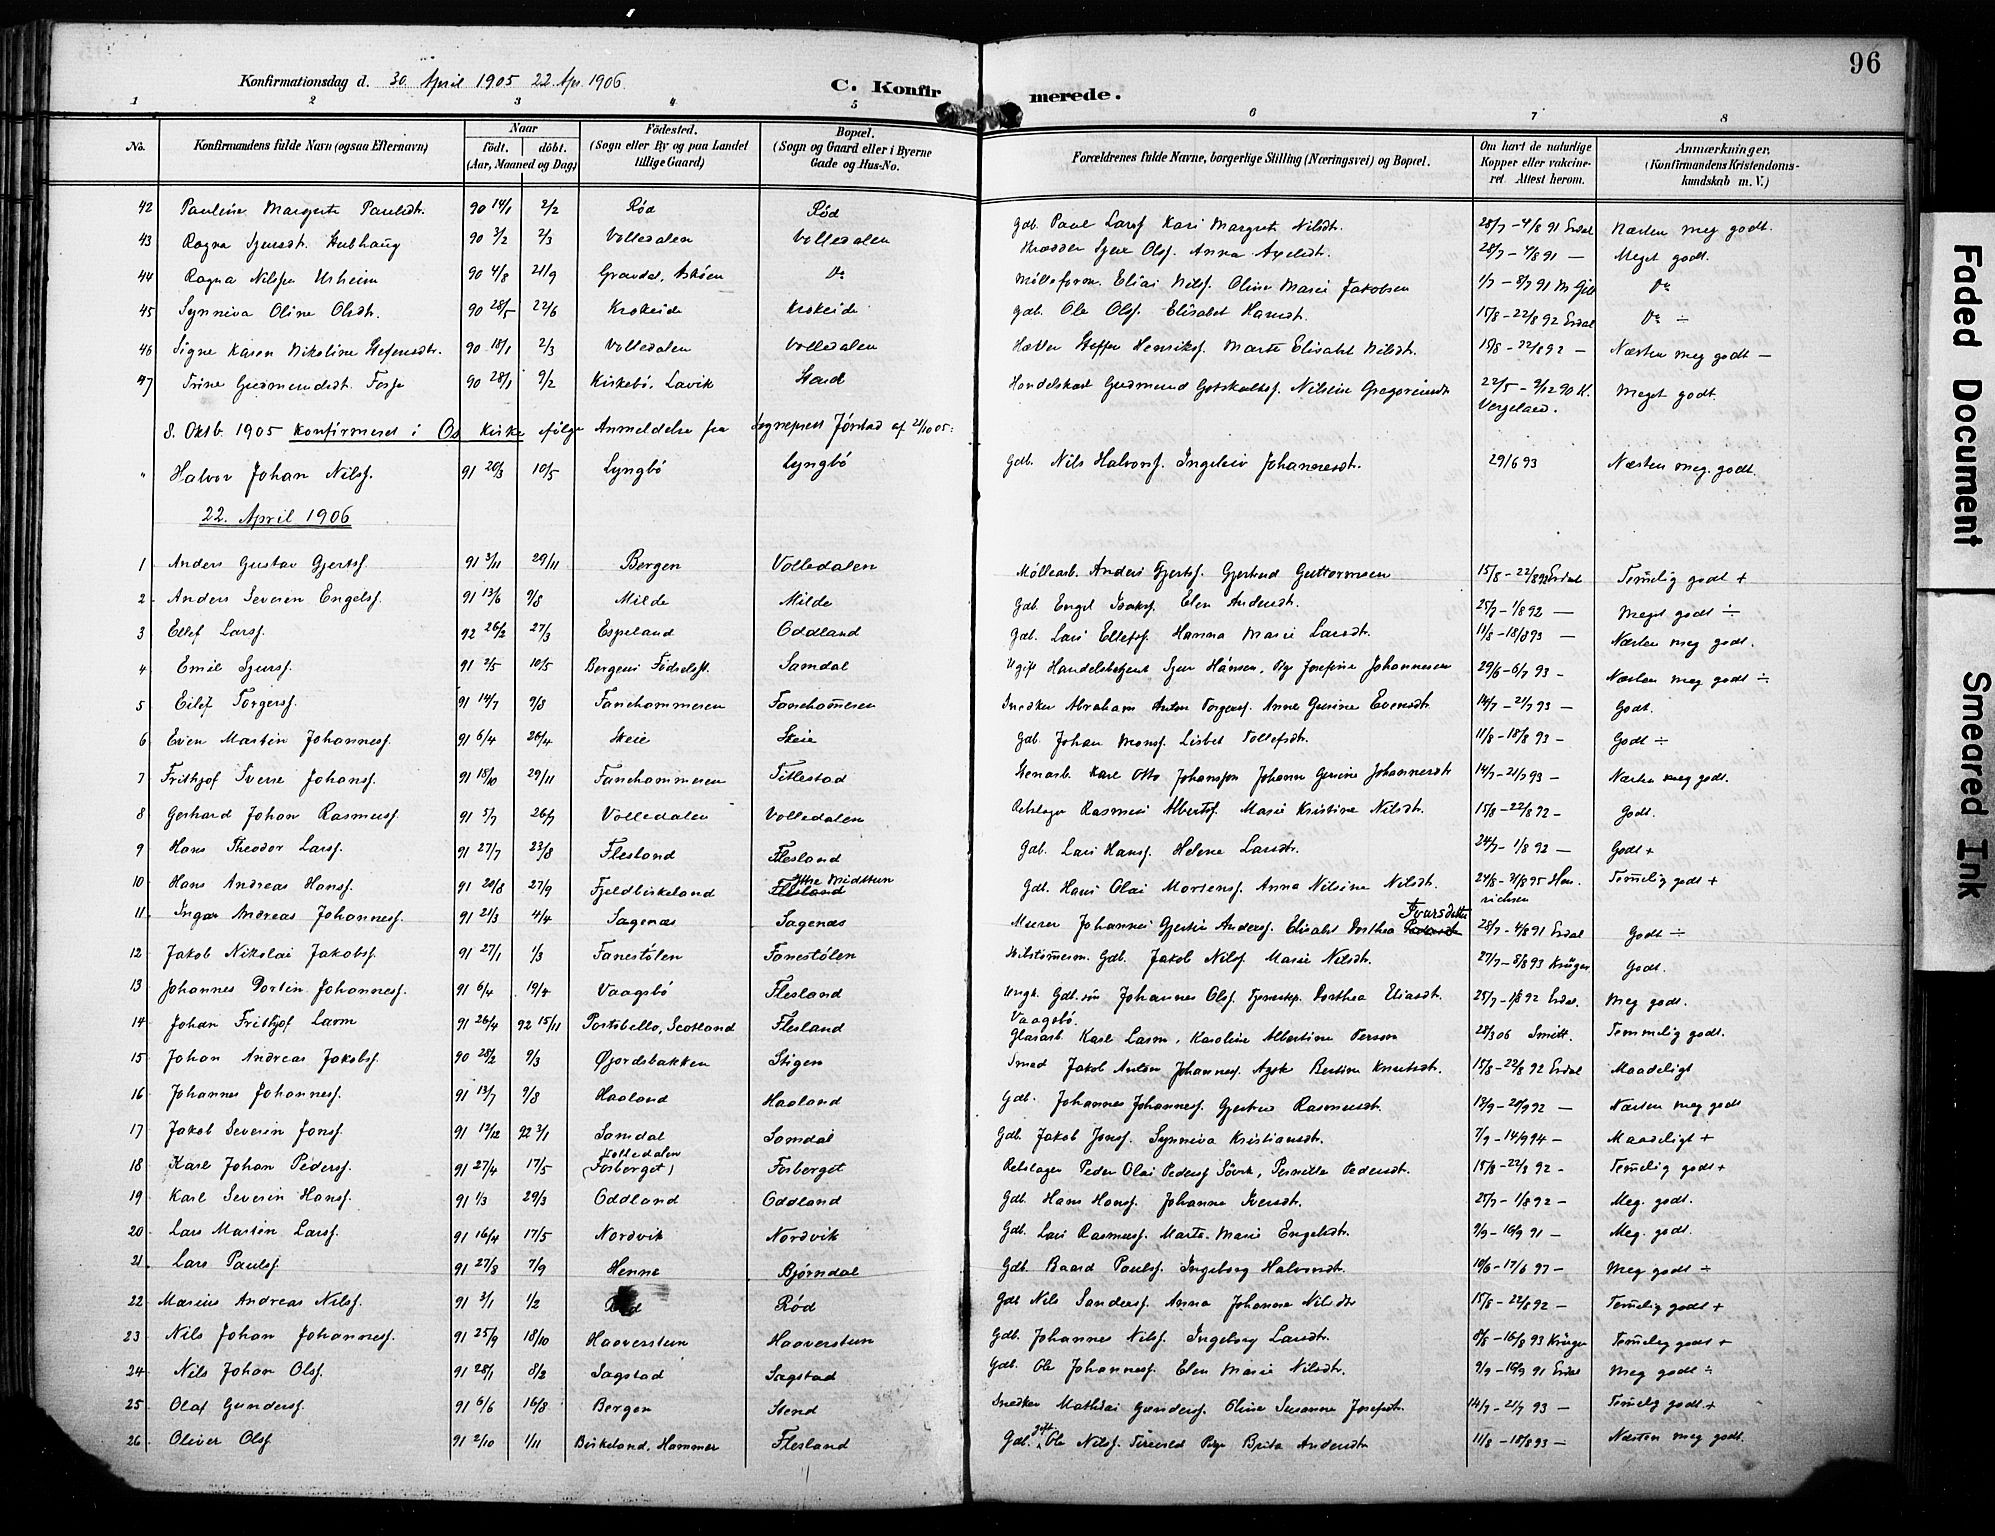 96
Konfirmationsdag d. 30. April 1905 22. Apr 1906
C. Konfirmerede.
1 2 3 4 5 6 7 8
No. Konfirmandens fulde Navn (ogsaa Efternavn) Naar födt. döbt. (Aar, Maaned og Dag) Födested. (Sogn eller By og paa Landet tillige Gaard) Bopæl. (Sogn og Gaard eller i Byerne Gade og Hus-No. Forældrenes fulde Navne, borgerlige Stilling (Næringsvei) og Bopæl. Om havt de naturlige Kopper eller vakcineret. Attest herom. Anmærkninger. (Konfirmandens Kristendomskundskab m. V.)
42 Pauline Margrete Paulsdt. 90 14/1 2/2 Rød Rød Gdb. Paul Larsf. Kari Margrete Nilsdt. 28/7 - 4/8 91 Erdal Næsten meg godt.
43 Ragna Sjursdt. 90 3/2 2/3 Volledalen Volledalen Sjur Olsf. Anna 28/7 - 4/8 91 — Meget godt.
44 Ragna Nilsen Urheim 90 4/8 21/9 Gravdal, Askøen Do Elias Nilsf. Oline Marie Jakobsen 1/7 - 8/7 91 Do
45 Synneva Oline Olsdt. 90 28/5 22/6 Krokeide Krokeide Gdb. Ole Olsf. Elisabet Hansdt. 15/8 - 22/8 92 Erdal Do ÷
46 Signe Karen Nikoline Stefensdtr. 90 18/1 2/3 Volledalen Volledalen Steffen Henriksf. Marte Elisabet Nilsdt. 15/8 - 22/8 92 — Næsten meg godt —
47 Trine Gudmundsdt. Fosse 90 28/1 9/2 Kirkebö, Lavik Stend Gudmund Gotskalksf. Nilsine Gregoriusdt 22/5 - 9/12 90 Meget godt.
8. Oktb. 1905 konfirmeret i Os Kirke ifølge Anmeldelse fra Sogneprest Jørstad af 21/10 05:
" Halvor Johan Nilsf. 91 20/3 10/5 Lyngbö Lyngbö Gdb. Nils Halvorsf. Ingeleiv Johannesdt. 29/6 93 Næsten meg. godt.
22. April 1906
1 Anders Gustav Gjertsf. 91 3/11 29/11 Bergen Volledalen Møllearb. Anders Gjertsf. Gjertrud Guttormsen 15/8 - 22/8 92 Erdal Temelig godt +
2 Anders Severin Engelsf. 91 13/6 9/8 Milde Milde Gdb. Engel Isaksf. Elen Andersdt. 25/7 - 1/8 92 — Meget godt ÷
3 Ellef Larsf. 92 26/2 27/3 Espeland Oddland Gdb. Lars Ellefsf. Hanna Marie Larsdt. 11/8 - 18/8 93 — Næsten meg godt.
4 Emil Sjursf. 91 2/5 10/5 Bergens Fødselsst. Samdal Ugift Handelsbetjent Sjur Hansen, Pige Josefine Johannesen 29/6 - 6/7 93 - Næsten meg godt ÷
5 Eilef Torgersf. 91 14/7 9/8 Fanehammeren Fanehameren Snedker Abraham Anton Torgersf. Anne Gurine Evensdt 14/7 - 21/7 93 - Godt.
6 Even Martin Johannesf. 91 6/4 26/4 Skeie Skeie Gdb. Johan Monsf. Lisbet Tollefsdt. 11/8 - 18/8 93 - Godt ÷
7 Frithjof Sverre Johansf. 91 18/10 29/11 Fanehammeren Titlestad Stenarb. Karl Otto Johansson Johanne Gurine Johannesdt 14/7 - 21/7 93 — Næsten meg godt.
8 Gerhard Johan Rasmusf. 91 5/7 26/7 Volledalen Volledalen Rebslager Rasmus Albertsf. Marie Kristine Nilsdt. 15/8 - 22/8 92 - Godt.
9 Hans Theodor Larsf. 91 27/7 23/8 Flesland Flesland Gdb. Lars Hansf. Helene Larsdt. 24/7 - 1/8 92 — Godt +
10 Hans Andreas Hansf. 91 20/8 27/9 Fjeldbirkeland Flesland Ytre Midttun Gdb. Hans Olai Mortensf. Anna Nilsine Nilsdt. 24/8 - 31/8 95 Henrichsen Temelig godt +
11 Ingar Andreas Johannesf. 91 21/3 4/4 Sagenæs Sagenæs Murer Johannes Gjertin Andersf. Elisabet Dorthea Ivarsdatter 28/7 - 4/8 91 Erdal Godt ÷
12 Jakob Nikolai Jakobsf. 91 27/1 1/3 Fanestølen Fanestølen Gdb. Jakob Nilsf. Marie Nilsdt. 27/7 - 3/8 93 Krüger Godt.
13 Johannes Dortin Johannesf. 91 6/4 19/4 Vaagsbö Flesland Ungk. Gdb.søn Johannes Olsf. Tjenestep. Dorthea Eliasdt. Vaagsbö. 25/7 - 1/8 92 Erdal. Meg godt.
14 Johan Frithjof Larm 91 26/4 92 15/11 Portobello, Scotland Flesland Glasarb. Karl Larm, Karoline Albertine Person 28/3 06 Smitt. Temmelig godt.
15 Johan Andreas Jakobsf. 90 28/2 9/3 Øjordsbakken Stigen Smed Jakob Anton Johannesf. Bertine Knutsdt. 15/8 - 22/8 92 Erdal Maadeligt
16 Johannes Johannesf. 91 13/7 9/8 Haaland Haaland Gdb. Johannes Johannesf. Gjertrud Rasmusdt. 13/9 - 20/9 92 — Næsten meg godt
17 Jakob Severin Jonsf. 91 12/12 92 3/1 Samdal Samdal Gdb. Jakob Jonsf. Synneva Kristiansdt. 7/9 - 14/9 94 — Maadeligt +
18 Karl Johan Pedersf. 91 27/4 17/5 Volledalen (Fosberget) Fosberget Rebslager Peder Olai Pedersf Søvik, Pernille Pedersdt. 15/8 - 22/8 92 - Temelig godt +
19 Karl Severin Hansf. 91 1/3 29/3 Oddland Oddland Gdb. Hans Hansf. Johanne Iversdt. 25/7 - 1/8 92 — Meg. godt.
20 Lars Martin Larsf. 91 16/4 17/5 Nordvik Nordvik Gdb. Lars Rasmusf. Marta Marie Engelsdt. 9/9 - 16/9 91 — Meg. godt.
21 Lars Paulsf. 91 27/8 7/9 Henne Bjørndal Gdb. Baard Paulsf. Ingeborg Halvorsdt. 10/6 - 17/6 97 — Meg godt ÷
22 Marius Andreas Nilsf. 91 3/1 1/2 Rød Rød Gdb Nils Sandersf. Anna Johanna Nilsdtr 15/8 - 22/8 92 — Temelig godt +
23 Nils Johan Johannesf. 91 25/9 18/10 Haaverstun Haaverstun Gdb. Johannes Nilsf. Ingeborg Larsdt. 8/8 - 16/8 93 Krüger Temelig godt +
24 Nils Johan Olsf. 91 28/1 8/2 Sagstad Sagstad Gdb. Ole Johannesf. Elen Marie Nilsdt. 9/9 - 16/9 91 Erdal Meg godt ÷
25 Olaf Gundersf. 91 6/6 16/8 Bergen Stend Snedker Mathias Gundersf. Oline Susanne Josefsdt. 14/7 - 21/7 93 — Temelig godt +
26 Oliver Olsf. 91 2/10 1/11 Birkeland, Hammer Flesland Gdb. gift Ole Nilsf. Pige Brita Andersdt 11/8 - 18/8 93 — Næsten meg godt.
Faded Document
Smeared Ink